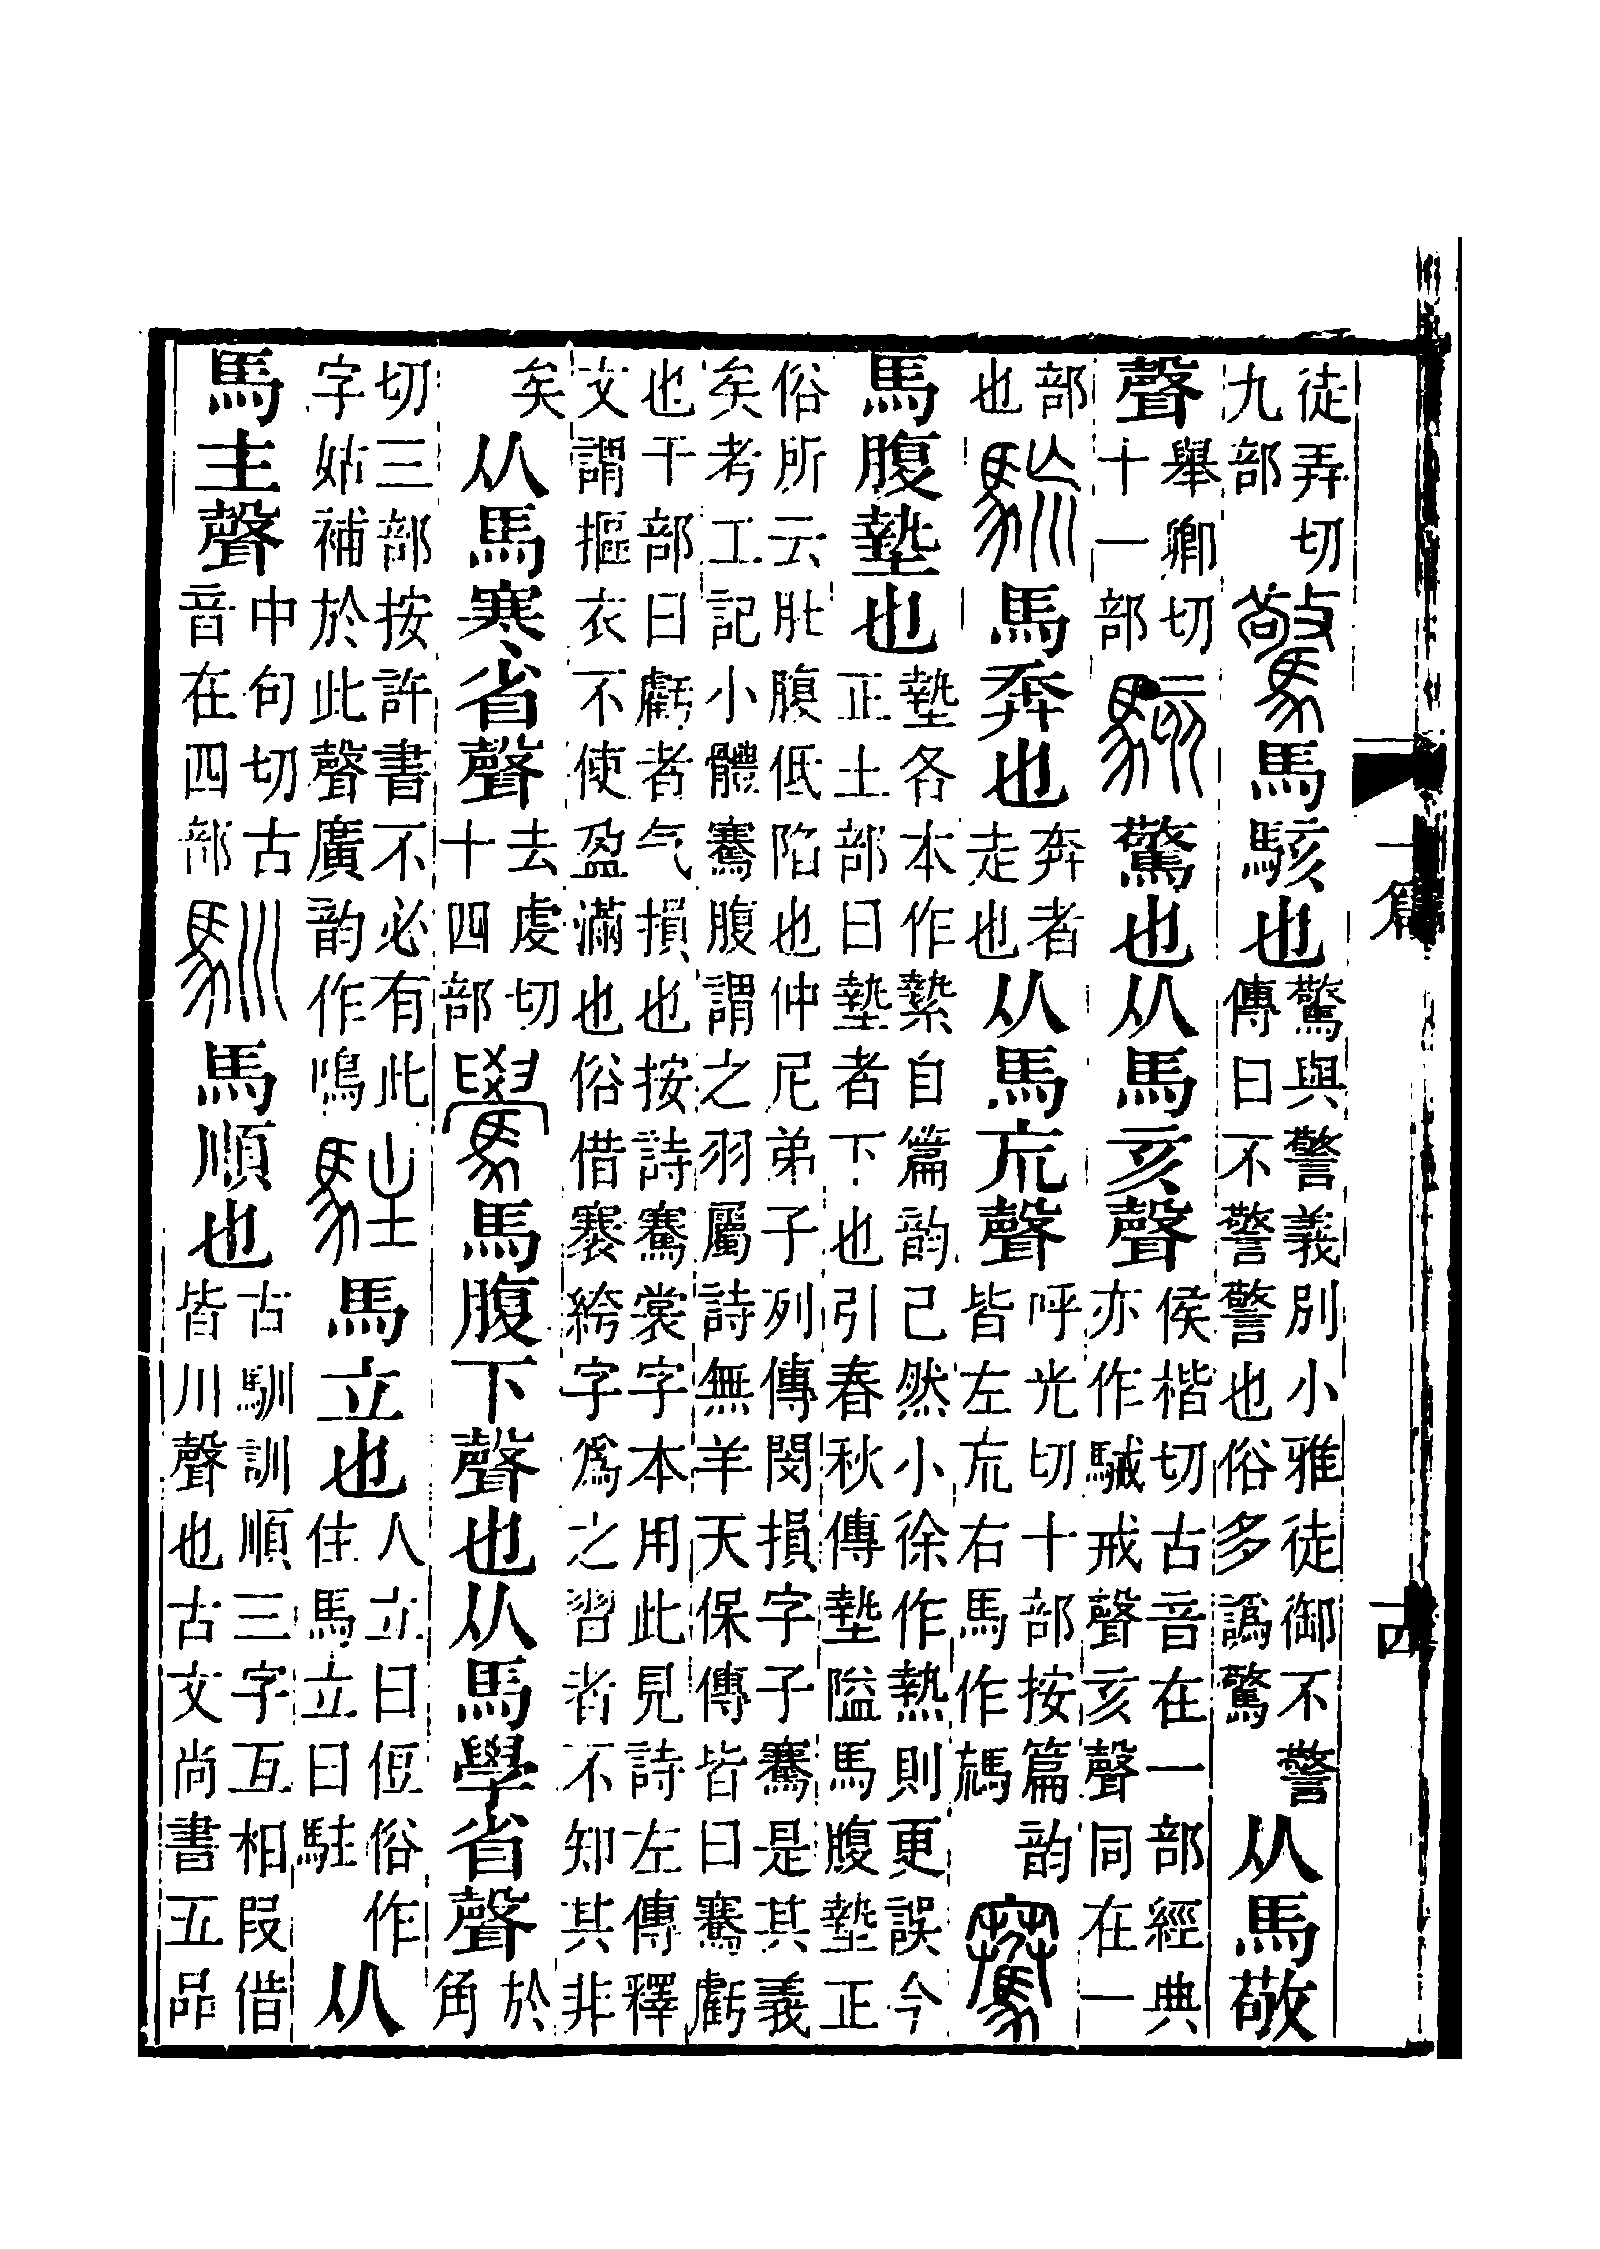 徒弄切九部驚馬駭也驚與警義別小雅徒御不警傳曰不警警也俗多譌驚从馬敬
聲舉卿切十一部駭驚也从馬亥聲侯楷切古音在一部經典亦作駴戒聲亥聲同在一
部也馬奔也奔者走也从馬巟聲呼光切十部按篇韵皆左巟右馬作騫
馬腹墊也墊各本作縶自篇韵已然小徐作熱則更誤今正土部曰墊者下也引春秋傳墊隘馬腹墊正
俗所云肚腹低陷也仲尼弟子列傳閔損字子騫是其義矣考工記小體騫腹謂之羽屬詩無羊天保傳皆曰騫虧
也干部曰虧者气損也按詩騫裳字本用此見詩左傳釋文謂摳衣不使盈滿也俗借褰絝字爲之習者不知其非
矣从馬寒省聲去虔切十四部馬腹下聲也从馬學省聲於角
切三部按許書不必有此字姑補於此聲廣韵作鳴駐馬立也人立曰侸俗作住馬立曰駐从
馬主聲中句切古音在四部馴馬順也古馴訓順三字互相叚借皆川聲也古文尚書五品